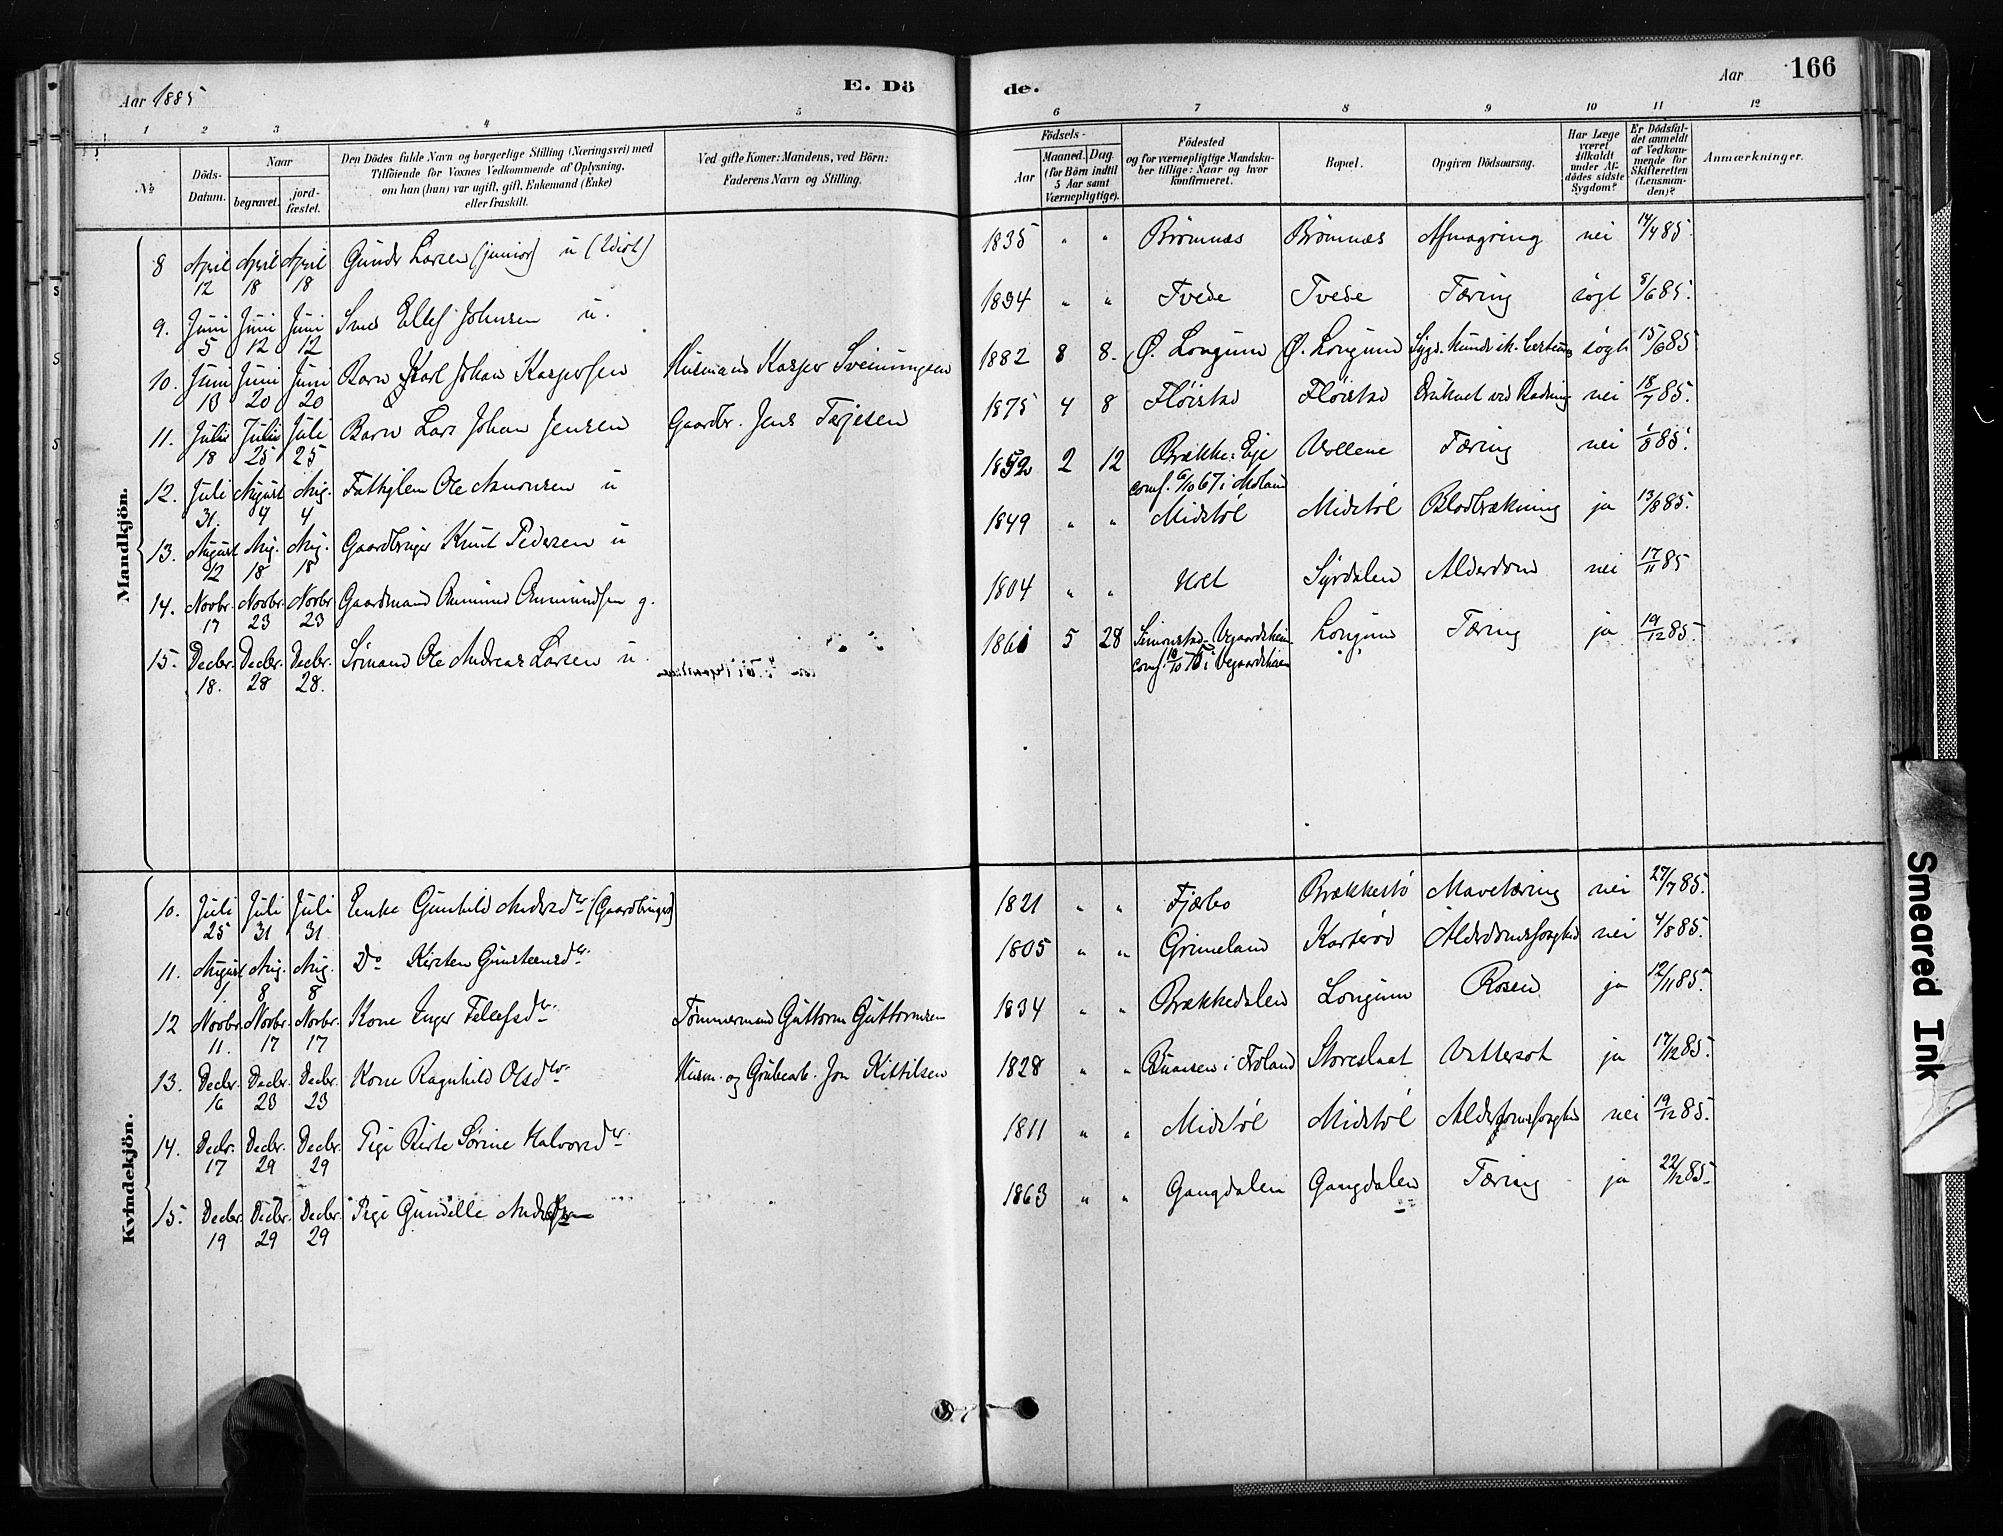 Aar 1885
E. Dö
de.
Aar
166
1 2 3 4 5 6 7 8 9 10 11 12
№
Döds-Datum.
Naar
begravet.
jordfæstet.
Den Dödes fulde Navn og borgerlige Stilling (Næringsvei) med
Tilföiende for Voxnes Vedkommende af Oplysning,
om han (hun) var ugift, gift, Enkemand (Enke)
eller fraskilt.
Ved gifte Koner: Mandens, ved Börn:
Faderens Navn og Stilling.
Födsels-
Aar
Maaned. Dag.
(for Börn indtil
5 Aar samt
Værnepligtige).
Födested
og for værnepligtige Mandskaber tillige: Naar og hvor
konfirmeret.
Bopæl.
Opgiven Dödsaarsag.
Har Læge
været
tilkaldt
under Afdödes sidste
Sygdom?
Er Dödsfaldet anmeldt
af Vedkommende for
Skifteretten
(Lensmanden)?
Anmærkninger.
Mandkjön.
8 April 12 April 18 April 18 Gunder Larsen (junior) u (Idiot) 1835 " " Brömnæs Brömnæs Afmagring nei 14/4 85.
9. Juni 5 Juni 12 Juni 12 Ellef Johnsen u. 1834 " " Tvede Tvede Tæring søgt 8/6 85.
10. Juni 13 Juni 20 Juni 20 Barn Karl Johan Kaspersen Husmand Kasper Sveinungsen 1882 8 8. Ø. Longum Ø. Longum søgt 15/6 85
11. Juli 18 Juli 25 Juli 25 Barn Lars Johan Jensen Gaardbr. Jens Terjesen 1875 4 8 Fløistad Fløistad Druknet ved Badning nei 18/7 85.
12. Juli 31. August 4 Aug. 4 Fattiglem Ole Aanonsen u 1852 2 12 Brække: Eje conf. 6/10 67 i Moland Vollene Tæring nei 1/8 85.
13. August 12 Aug. 18 Aug. 18 Gaardbruger Knut Pedersen u 1849 " " Midstøl Midstøl Blodbrækning ja 13/8 85.
14. Novbr. 17 Novbr. 23 Novbr 23 Gaardmand Aanund Aanundsen g. 1804 " " Uret Syrdalen Alderdom nei 17/11 85
15. Decbr. 18. Decbr. 28 Decbr. 28. Sømand Ole Andreas Larsen u. 1861 5 28 Simonstad Vegaardsheien conf. i Vegaardsheien Longum Tæring ja 19/12 85.
Kvindekjön.
10. Juli 25 Juli 31 Juli 31 Enke Gunhild Andersdtr (Gaardbruger) 1821 " " Fjærbo Brækkestø Mavetæring nei 27/7 85.
11. August 1. Aug. 8 Aug. 8 Do Kirsten Gunsteensdtr. 1805 " " Grimeland Karterød Alderdomssvaghed nei 4/8 85.
12 Novbr. 11. Novbr. 17 Novbr. 17 Kone Inger Tellefsdtr. Tømmermand Guttorm Guttormsen 1834 " " Brækkedalen Longum Rosen ja 12/11 85.
13. Decbr. 16 Decbr. 23 Decbr. 23 Kone Ragnhild Olsdtr. Husm. og Grubearb. Jon Kittilsen 1828 " " i Froland Storeslaat Vattersot ja 17/12 85.
14. Decbr. 17 Decbr. 29 Decbr. 29 Pige Birte Sørine Halvorsdtr. 1811 " " Midstøl Midstøl Alderdomssvaghed nei 19/12 85.
15. Decbr. 19 Decbr. 29 Decbr. 29 Pige Gunille 1863 " " Gangdalen Gangdalen Tæring ja 22/12 85.
Smeared Ink